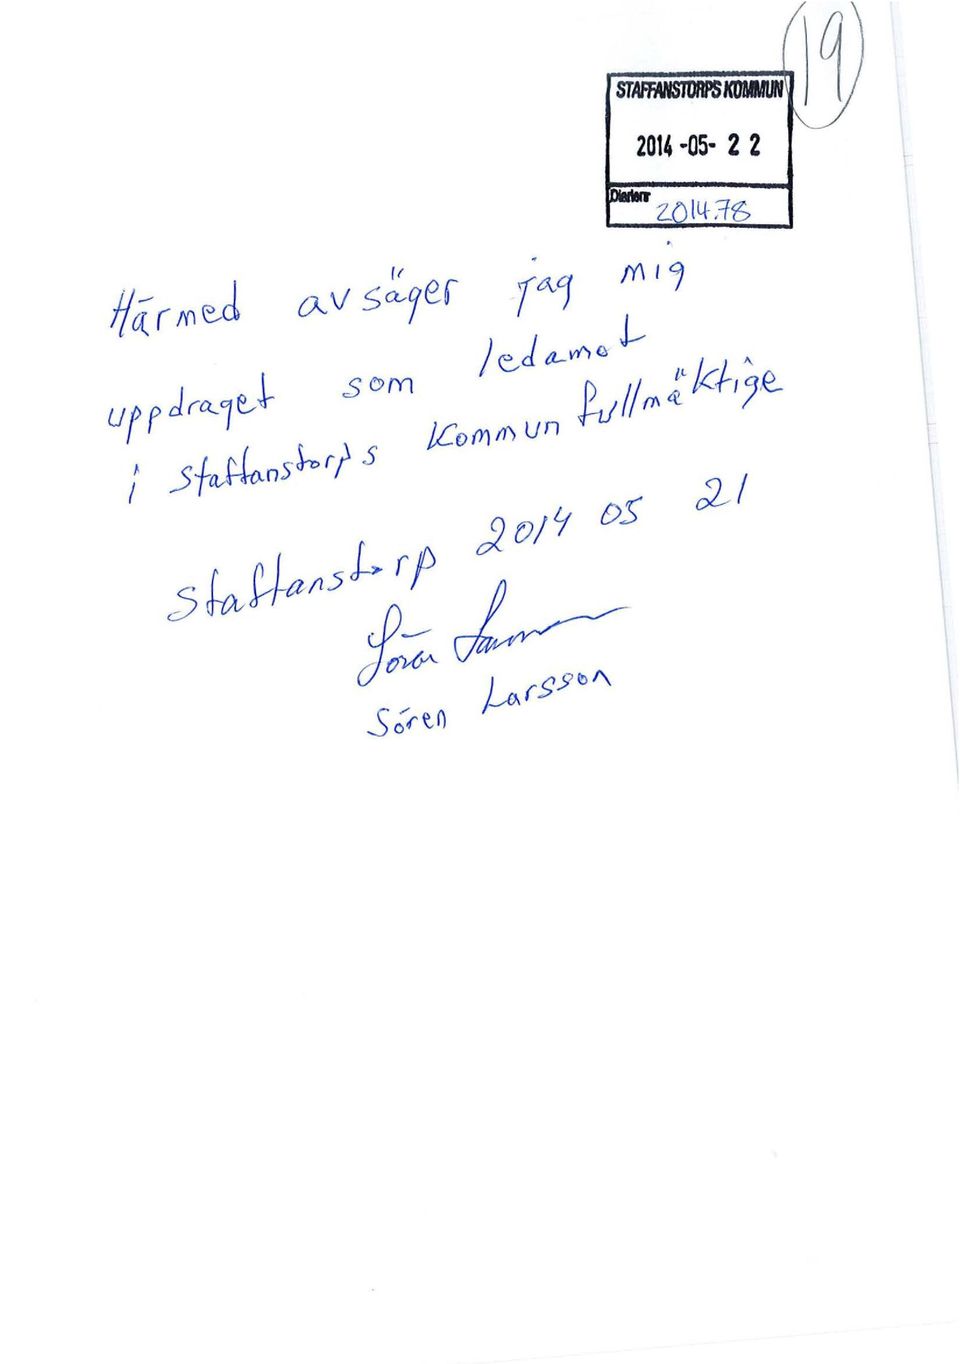 19
STAFFANSTORPS KOMMUN
2014 -05- 2 2
Diarienr 2014.78
Härmed avsäger jag mig
uppdraget som ledamot
i Staffanstorps Kommunfullmäktige
Staffanstorp 2014 05 21
Sören Larsson
Sören Larsson